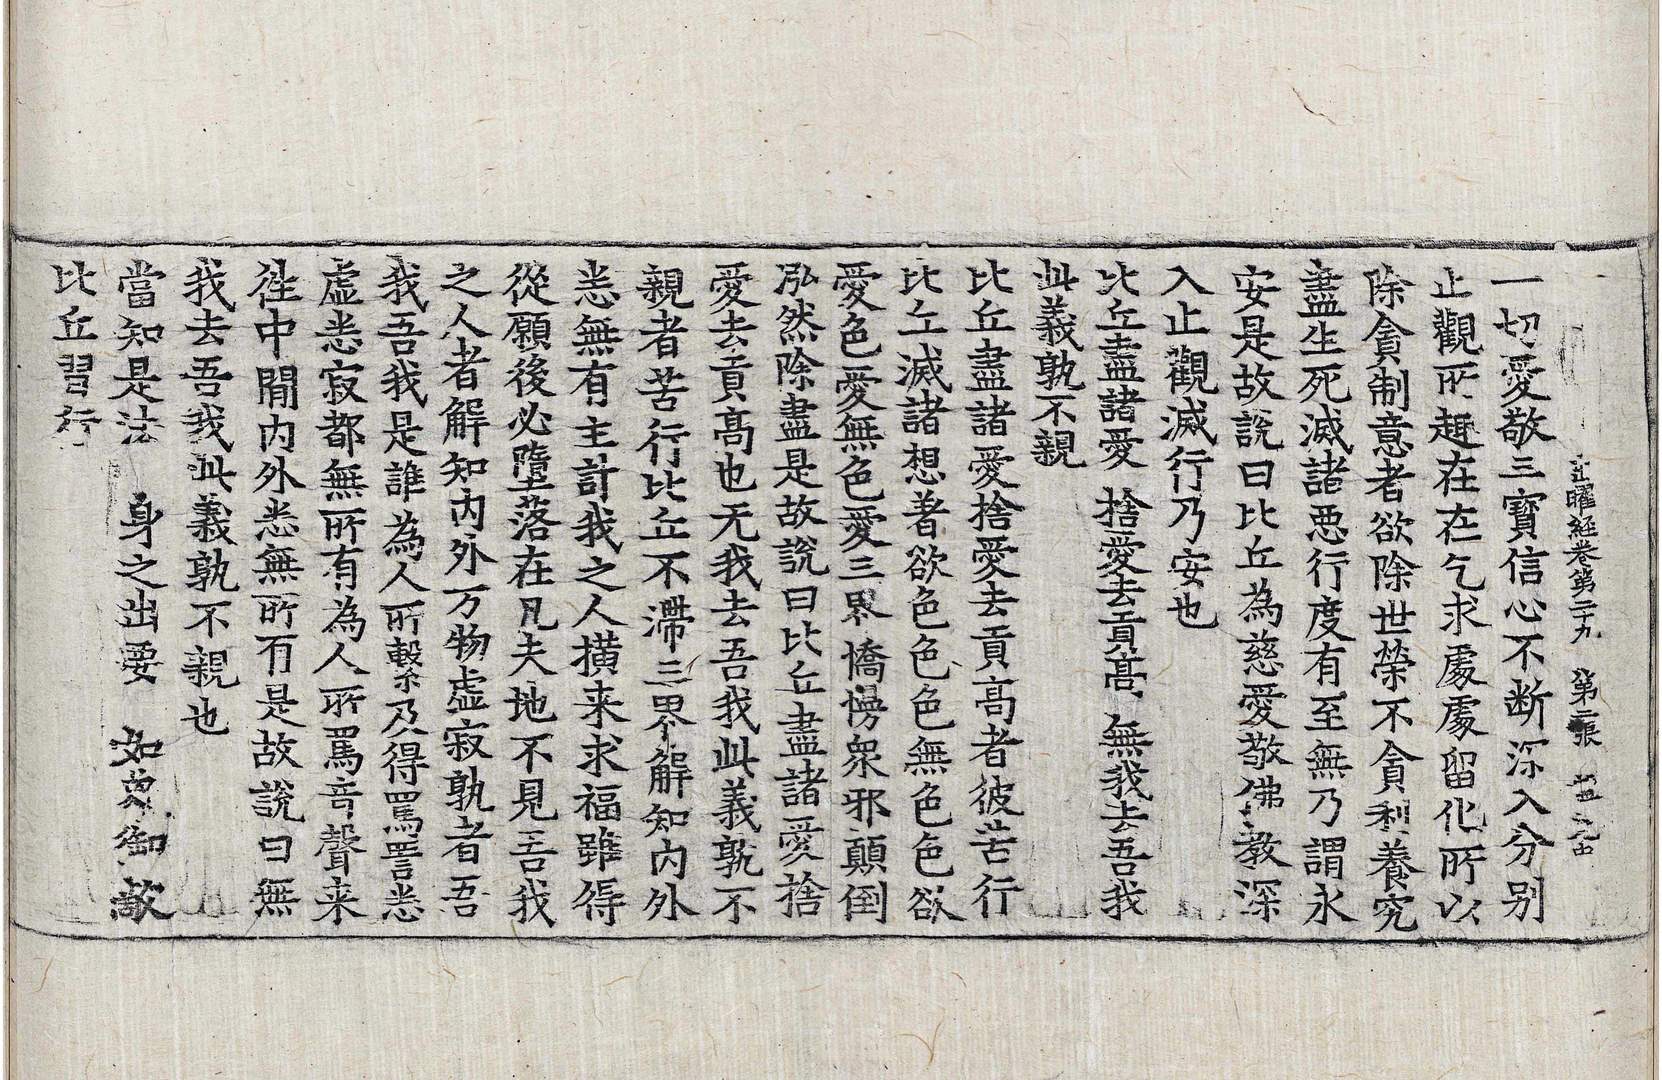 出曜經卷第二十九　第二張
一切愛敬三寶信心不断深入分別
止觀所趣在在乞求處處留化所以
除貪制意者欲除世榮不貪利養究
盡生死滅諸恶行度有至無乃謂永
安是故說曰比丘為慈愛敬佛教深
入止觀滅行乃安也
比丘盡諸愛　捨愛去貢髙　無我去吾我
此義孰不親
比丘盡諸愛捨愛去貢髙者彼苦行
比丘滅諸想著欲色色色無色色欲
愛色愛無色愛三界憍慢衆邪顛倒
泓然除盡是故說曰比丘盡諸愛捨
愛去貢髙也无我去吾我此義孰不
親者苦行比丘不滯三界解知內外
恙無有主計我之人橫来求福雖得
從願後必墮落在凡夫地不見吾我
之人者解知內外万物虛寂孰者吾
我吾我是誰為人所繫及得罵詈恙
虛恙寂都無所有為人所罵音聲来
往中間內外恙無所有是故說曰無
我去吾我此義孰不親也
當知是法　身之出要　如象御敵
比丘習行